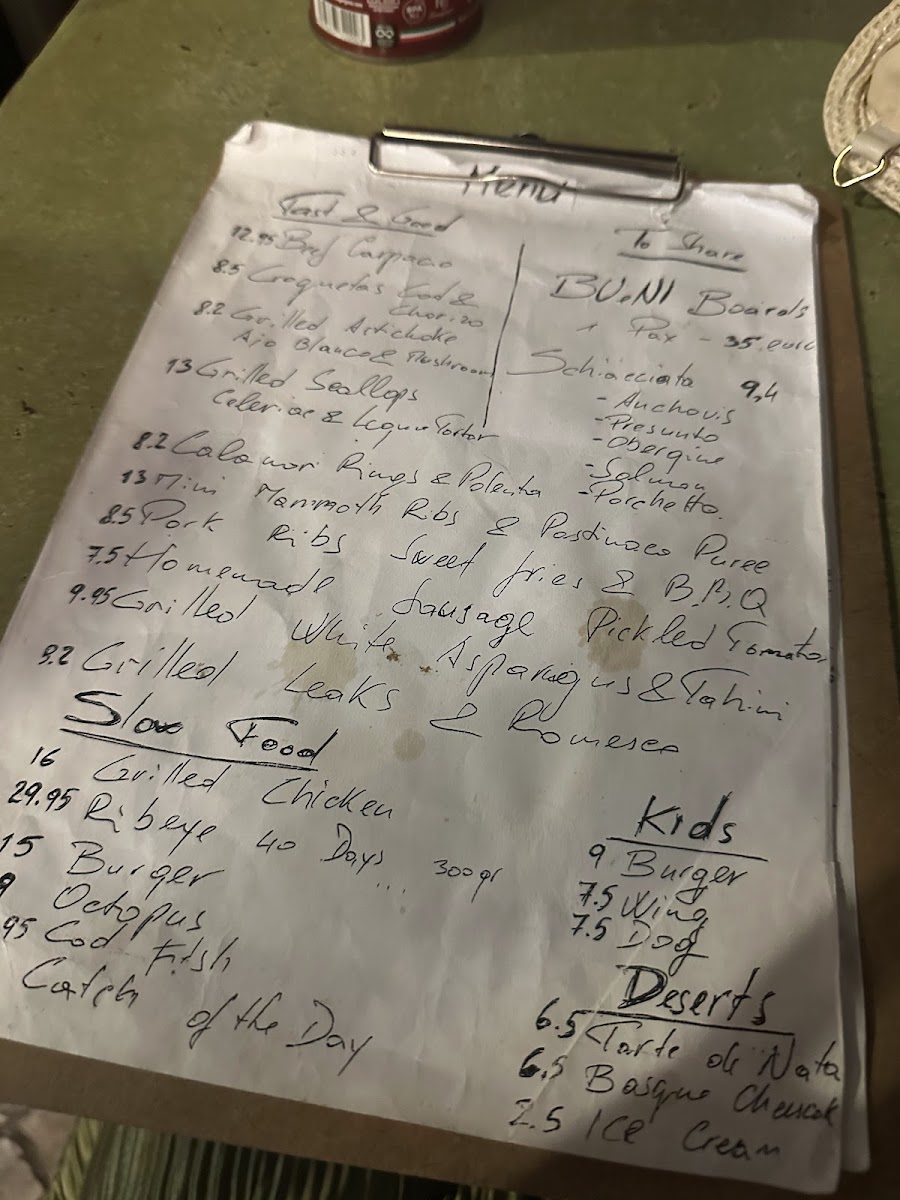 Menu
Fast & Good
12.95 Beef Carpacio
8.5 Croquetas Cod &
Chorizo
8.2 Grilled Artichoke
Ajo Blanco & Mushroom
13 Grilled Scallops
Celeriac &
8.2 Calamari Rings & Polenta
13 Mini Mammoth Ribs & Pastinaco Puree
8.5 Pork Ribs Sweet fries & B.B.Q
7.5 Homemade Sausage Pickled Tomato
9.95 Grilled White Asparigus & Tahini
8.2 Grilled Leaks & Romesco
To Share
BU.NI Boards
1 Pax - 35 euro
Schiacciata 9,4
- Anchovis
- Presunto
- Obergine
- Salmon
- Porchetta
Slow Food
16 Grilled Chicken
29.95 Ribeye 40 Days ... 300gr
15 Burger
9 Octopus
95 Cod Fish
Catch of the Day
Kids
9 Burger
7.5 Wing
7.5 Dog
Deserts
6.5 Tarte de Nata
6.5 Basque
2.5 Ice Cream